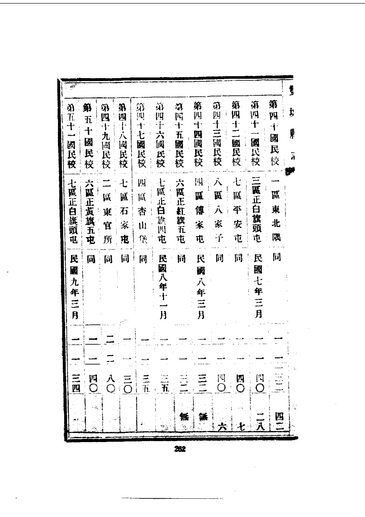 第四十國民校 一區東北隅 同 一 一 三二 四二
第四十一國民校 三區正白旗頭屯 民國七年三月 一 一 四〇 二八
第四十二國民校 七區平安屯 同 一 一 四〇 七
第四十三國民校 八區八家子 同 一 一 四〇 六
第四十四國民校 四區傅家屯 民國八年三月 一 一 三二 無
第四十五國民校 六區正紅旗五屯 同 一 一 三二 無
第四十六國民校 七區正白旗四屯 民國八年十一月 一 一 三五
第四十七國民校 四區杏山堡 同 一 一 三五
第四十八國民校 七區石家屯 同 一 一 三〇
第四十九國民校 二區東官所 同 二 二 八〇
第五十國民校 六區正黃旗五屯 同 一 一 四〇
第五十一國民校 七區正白旗頭屯 民國九年三月 一 一 三四
262